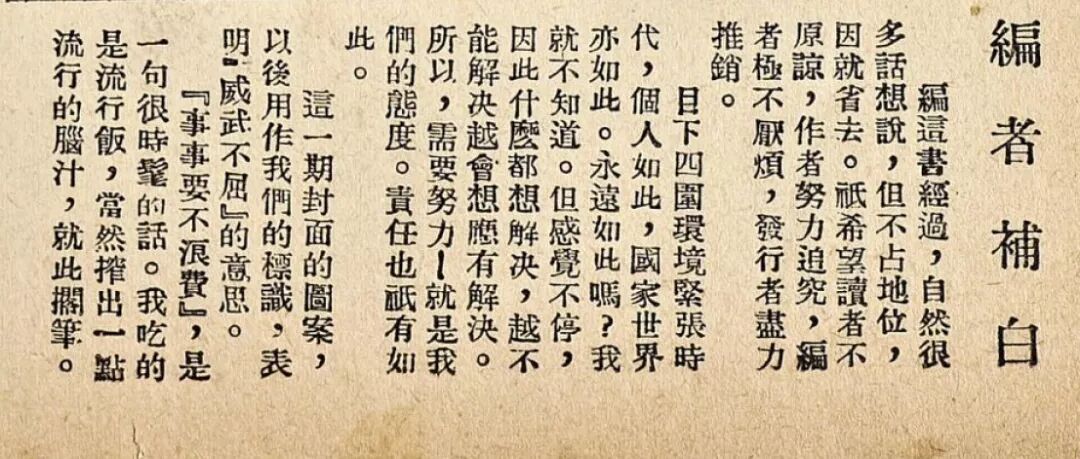 編者補白
編這書經過，自然很
多話想說，但不占地位，
因就省去。祇希望讀者不
原諒，作者努力迫究，編
者極不厭煩，發行者盡力
推銷。
目下四圍環境緊張時
代，個人如此，國家世界
亦如此。永遠如此嗎？我
就不知道。但感覺不停，
因此什麽都想解决，越不
能解决越會想應有解决。
所以，需要努力—就是我
們的態度。責任也祇有如
此。
這一期封面的圖案，
以後用作我們的標識，表
明『威武不屈』的意思。
『事事要不浪費』，是
一句很時髦的話。我吃的
是流行飯，當然搾出一點
流行的腦汁，就此擱筆。